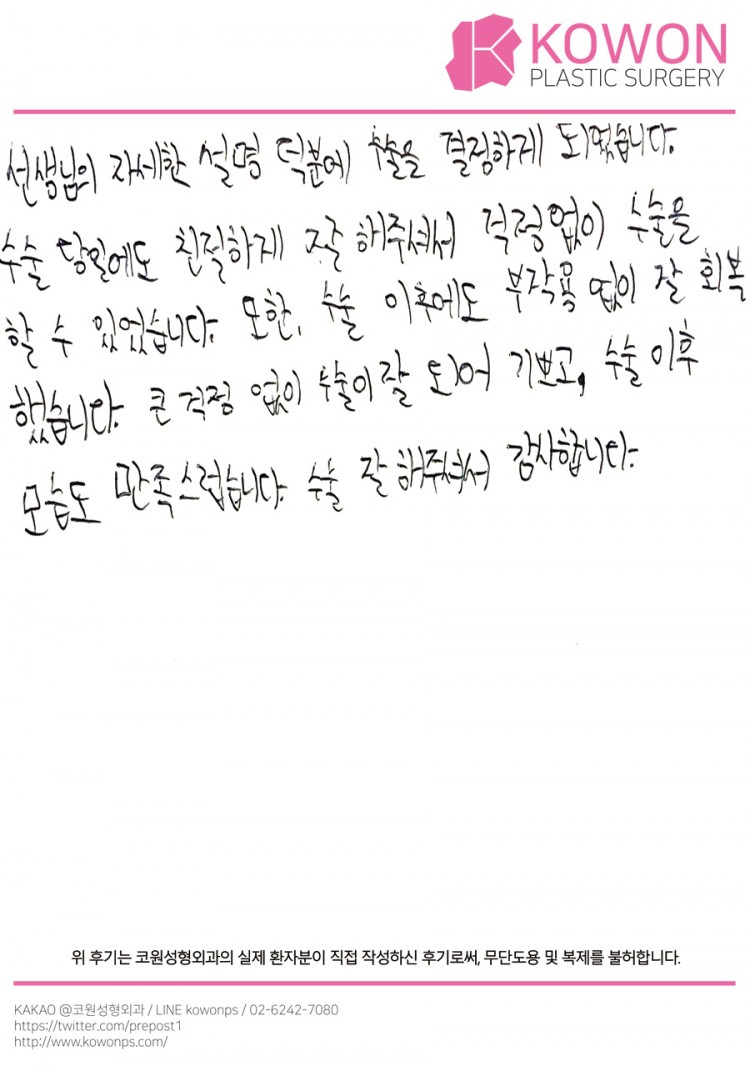 KOWON
PLASTIC SURGERY
선생님의 자세한 설명 덕분에 수술을 결정하게 되었습니다.
수술 당일에도 친절하게 잘 해주셔서 걱정없이 수술을
할 수 있었습니다. 또한, 수술 이후에도 부작용 없이 잘 회복
했습니다. 큰 걱정 없이 수술이 잘 되어 기쁘고, 수술 이후
모습도 만족스럽습니다. 수술 잘 해주셔서 감사합니다.
위 후기는 코원성형외과의 실제 환자분이 직접 작성하신 후기로써, 무단도용 및 복제를 불허합니다.
KAKAO @코원성형외과 / LINE kowonps / 02-6242-7080
https://twitter.com/prepost1
http://www.kowonps.com/